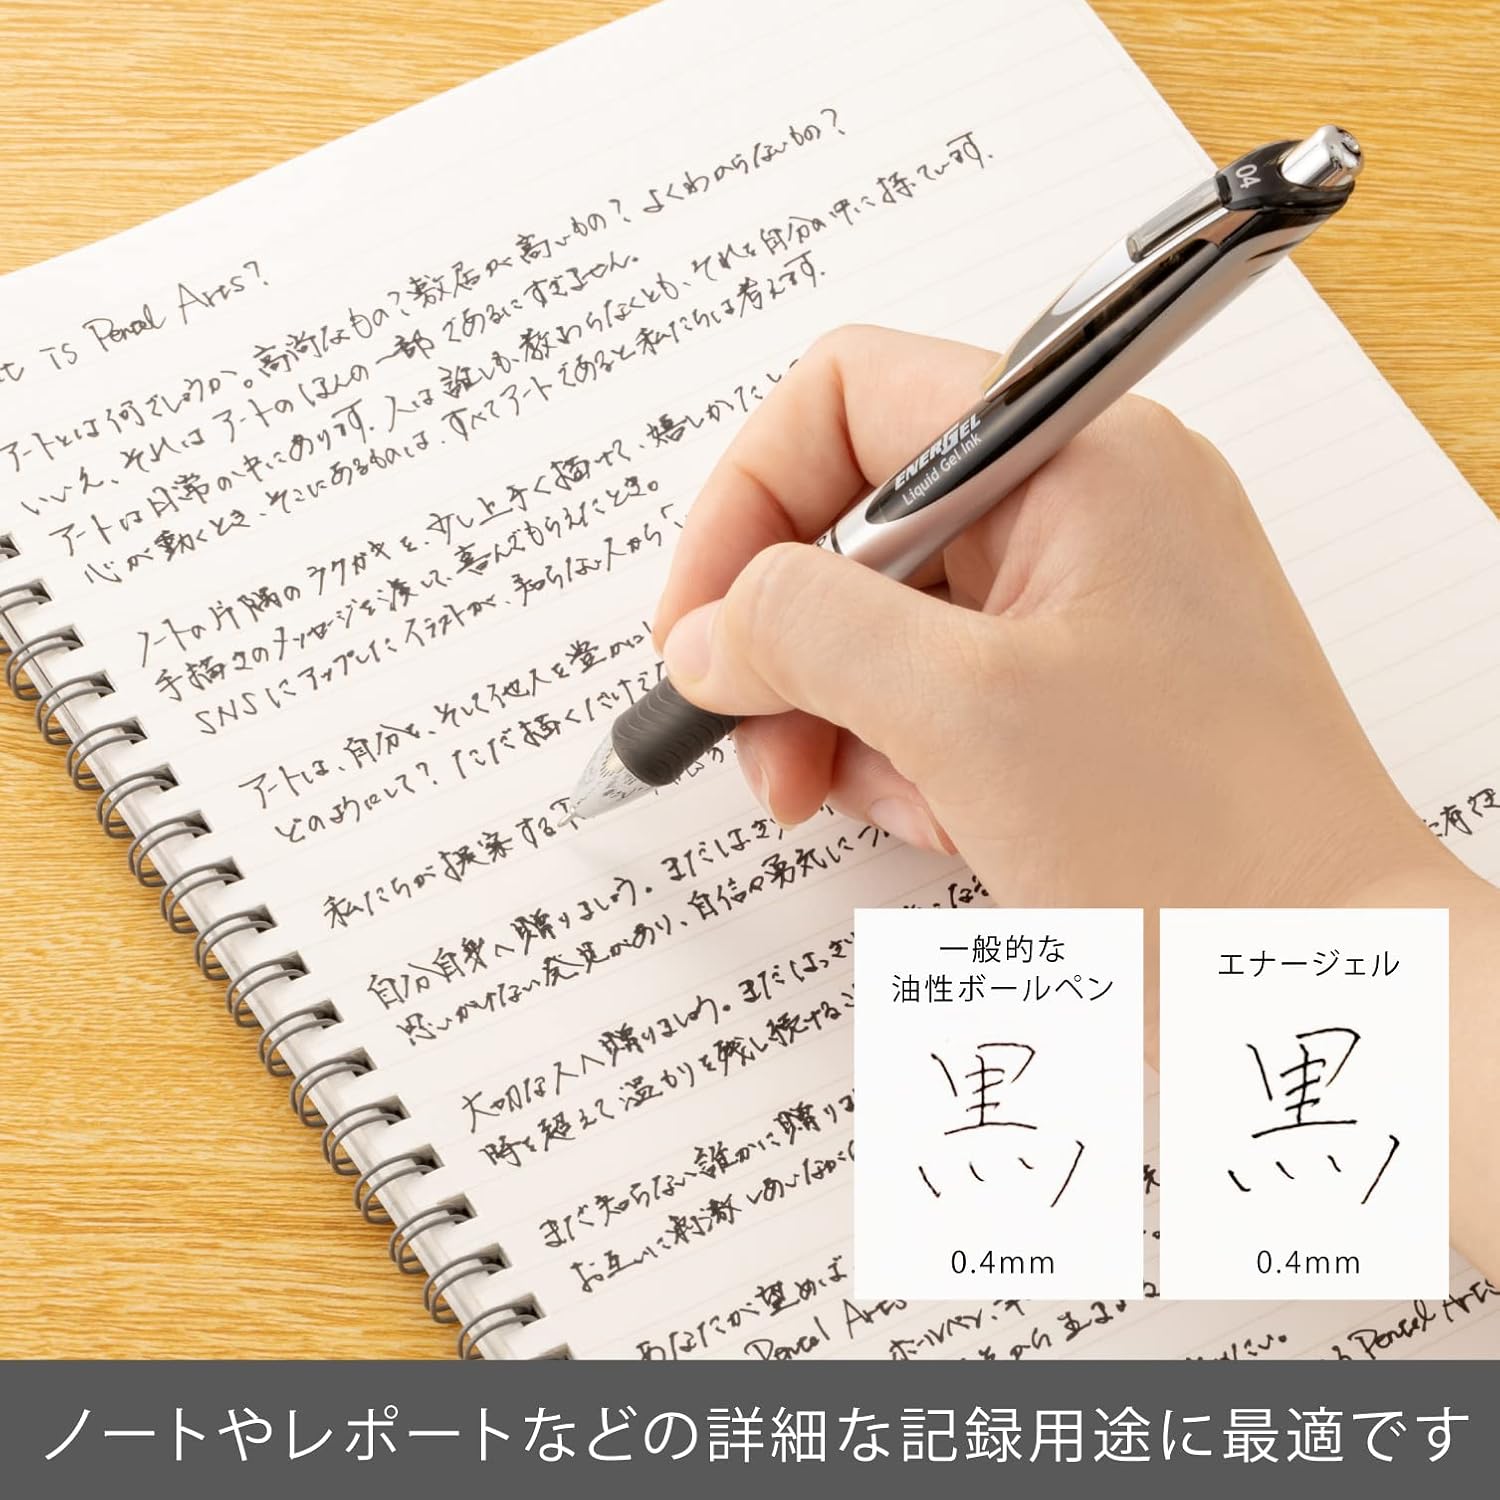 Pentel Arts?
アートとは何でしょうか。高尚なもの?敷居が高いもの?よくわからないもの?
いいえ、それはアートのほんの一部であるにすぎません。
アートは日常の中にあります。人は誰しも教わらなくとも、それを自分の中に持ています。
心が動くとき、そこにあるものは、すべてアートであると私たちは考えます。
ノートの片隅のラクガキを、少し上手く描けて、嬉しかったとき
手描きのメッセージを渡して、喜んでもらえたとき。
SNSにアップしたイラストが、知らない人から「い
アートは、自分を、そして他人を豊かに
どのようにして? ただ描くだけで
私たちが提案する
自分自身へ贈りましょう。まだはっきり
思いがけない発見があり、自信や勇気につ
大切な人へ贈りましょう。まだはっきり
時を超えて温もりを残し続けるこ
まだ知らない誰かに贈りま
お互いに刺激しあいながら
あなたが望めば
Pentel Arts
ボールペン、
から生まれ
Pentel Arts
04
ENERGEL
Liquid Gel Ink
一般的な
油性ボールペン
黒
0.4mm
エナージェル
黒
0.4mm
ノートやレポートなどの詳細な記録用途に最適です